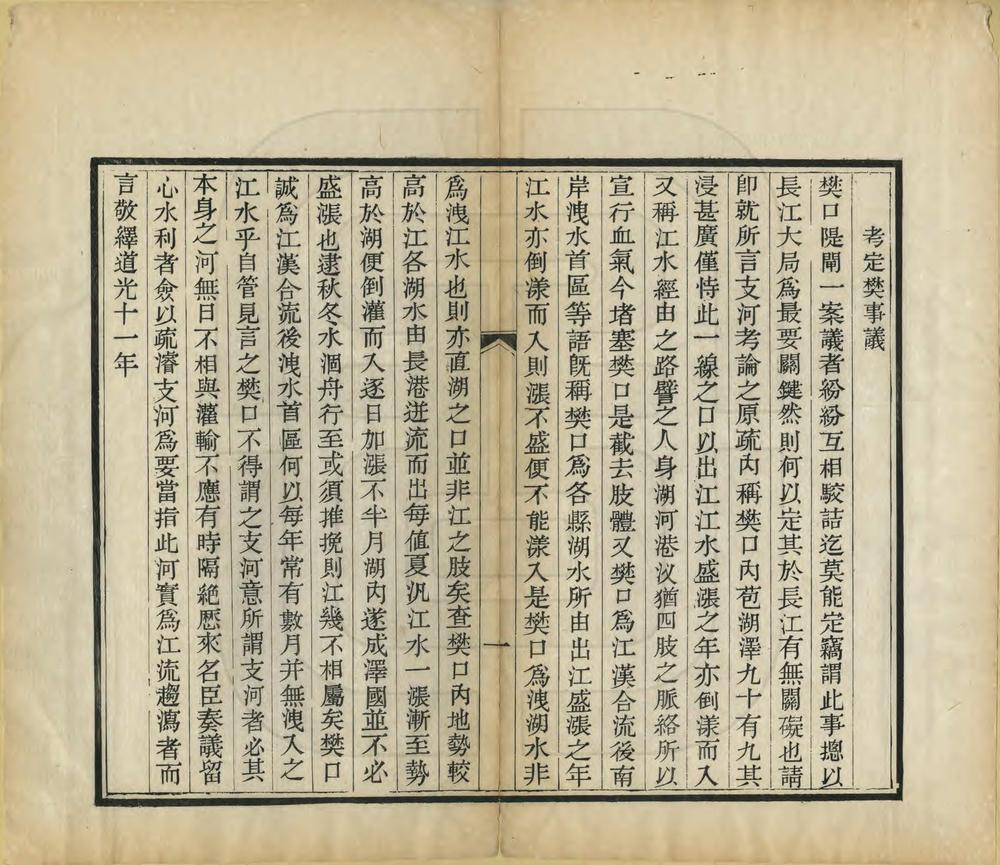 考定樊事議
樊口隄閘一案議者紛紛互相駮詰迄莫能定竊謂此事摠以
長江大局爲最要關鍵然則何以定其於長江有無關礙也請
卽就所言支河考論之原疏內稱樊口內苞湖澤九十有九其
浸甚廣僅恃此一線之口以出江江水盛漲之年亦倒漾而入
又稱江水經由之路譬之人身湖河港汊猶四肢之脈絡所以
宣行血氣今堵塞樊口是截去肢體又樊口爲江漢合流後南
岸洩水首區等語旣稱樊口爲各縣湖水所由出江盛漲之年
江水亦倒漾而入則漲不盛便不能漾入是樊口爲洩湖水非
一
爲洩江水也則亦直湖之口並非江之肢矣查樊口內地勢較
高於江各湖水由長港迸流而出每值夏汛江水一漲漸至勢
高於湖便倒灌而入逐日加漲不半月湖內遂成澤國並不必
盛漲也逮秋冬水涸舟行至或須推挽則江幾不相屬矣樊口
誠爲江漢合流後洩水首區何以每年常有數月并無洩入之
江水乎自管見言之樊口不得謂之支河意所謂支河者必其
本身之河無日不相與灌輸不應有時隔絕歷來名臣奏議留
心水利者僉以疏濬支河爲要當指此河實爲江流趨瀉者而
言敬繹道光十一年